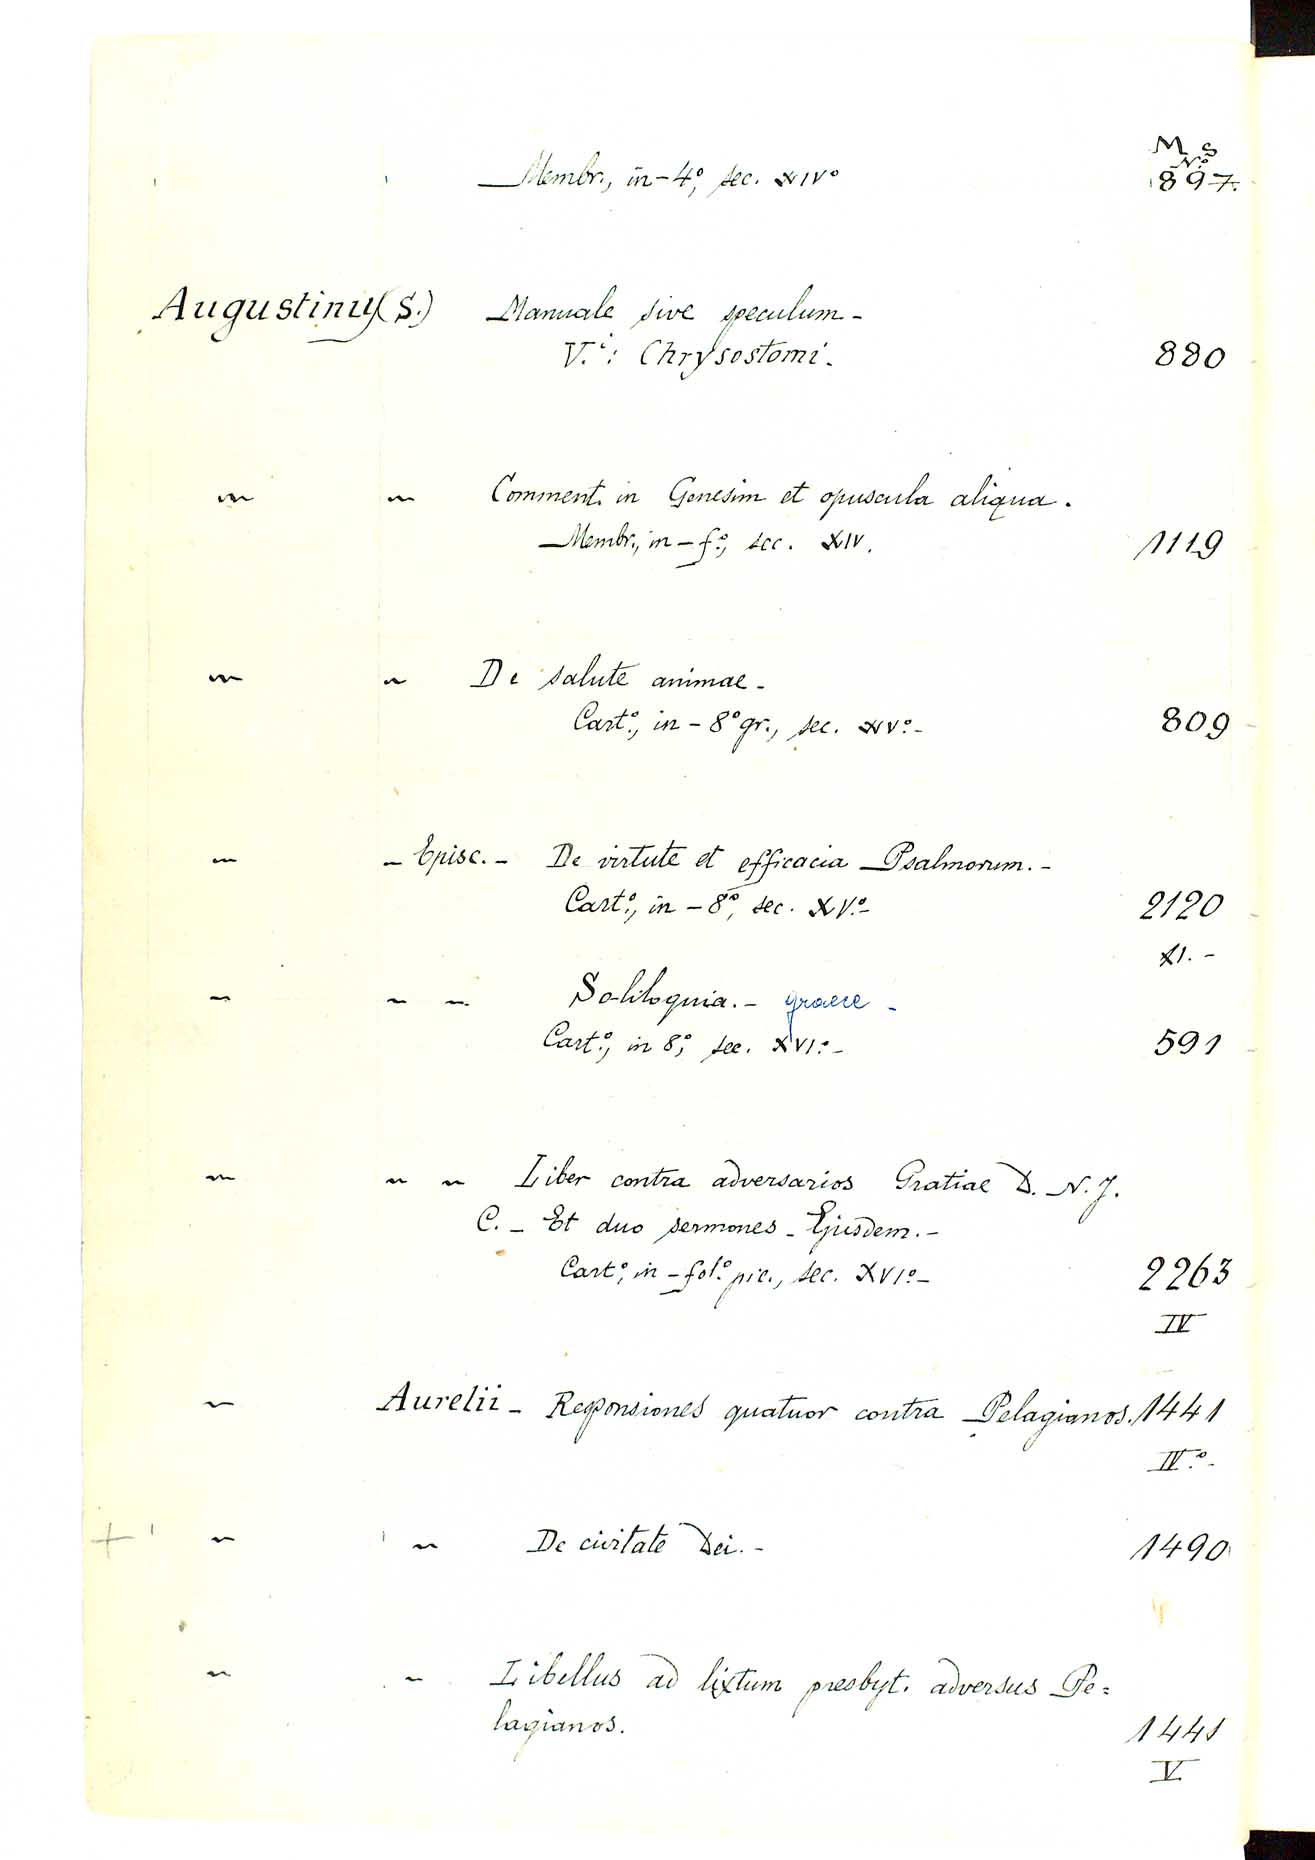 M s
Nº
Membr., in-4º, sec. XIVº 897.
Augustinus (S.) Manuale sive speculum -
V.i: Chrysostomi. 880
" " Comment. in Genesim et opuscula aliqua.
Membr., in-fº, sec. XIV. 1119
" " De salute animae -
Cart.º, in-8º gr., sec. XVº.- 809
" - Episc. - De virtute et efficacia Psalmorum. -
Cart.º, in-8º, sec. XV.º- 2120
XI. -
" " " Soliloquia. - graece -
Cart.º, in 8º, sec. XVI.º- 591
" " " Liber contra adversarios Gratiae D. N. J.
C. - Et duo sermones - Ejusdem. -
Cart.º, in-fol.º pic., sec. XVIº- 2263
IV
" Aurelii - Responsiones quatuor contra Pelagianos. 1441
IV.º-
+ " " De civitate Dei. - 1490
" " Libellus ad lixtum presbyt. adversus Pe=
lagianos. 1441
V